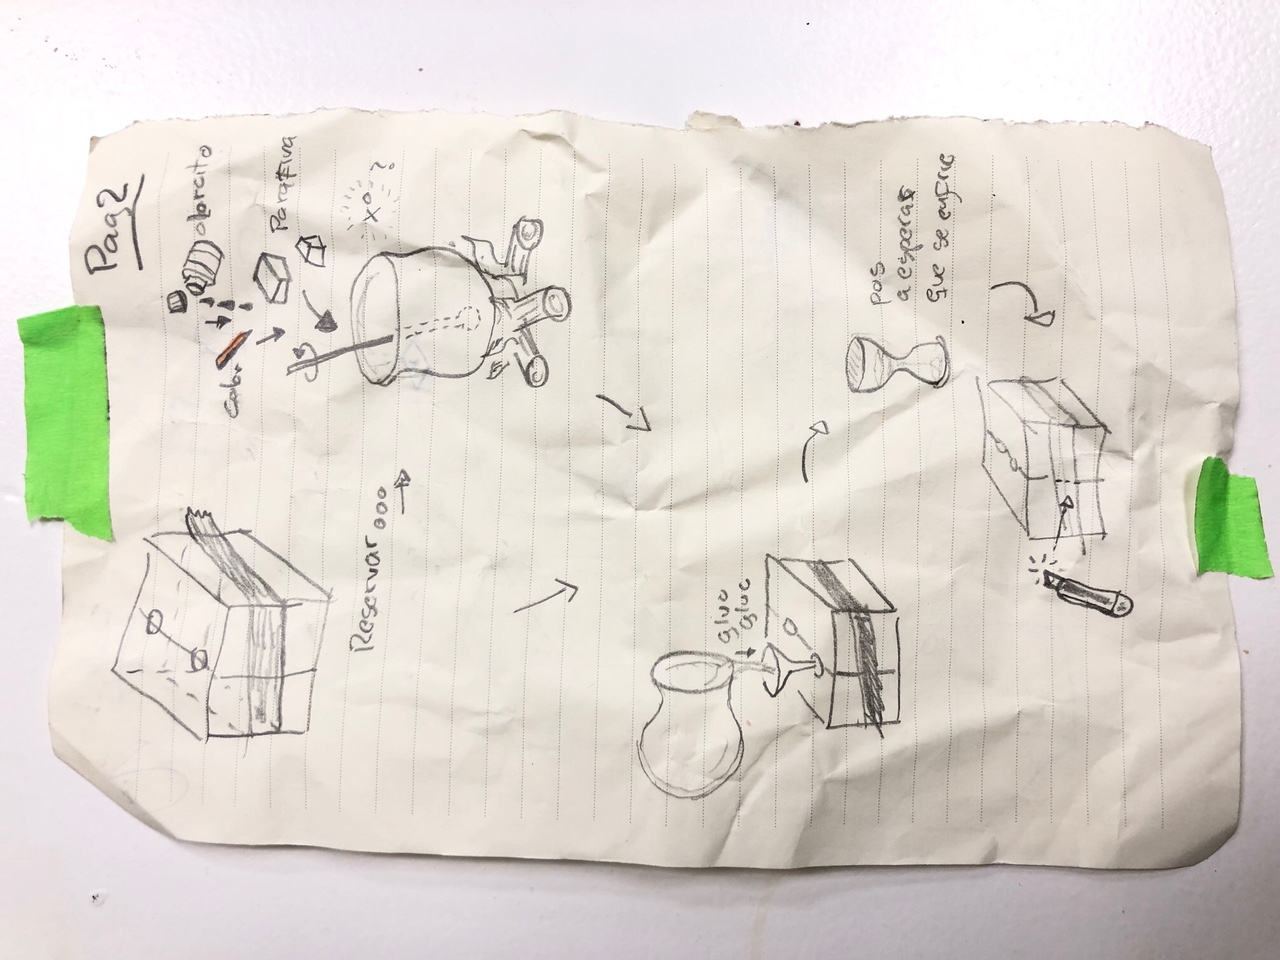 Pag 2
olorcito
color
Parafina
Reservar...
x° ?
gluc
gluc
pos
a esperar
que se enfrie